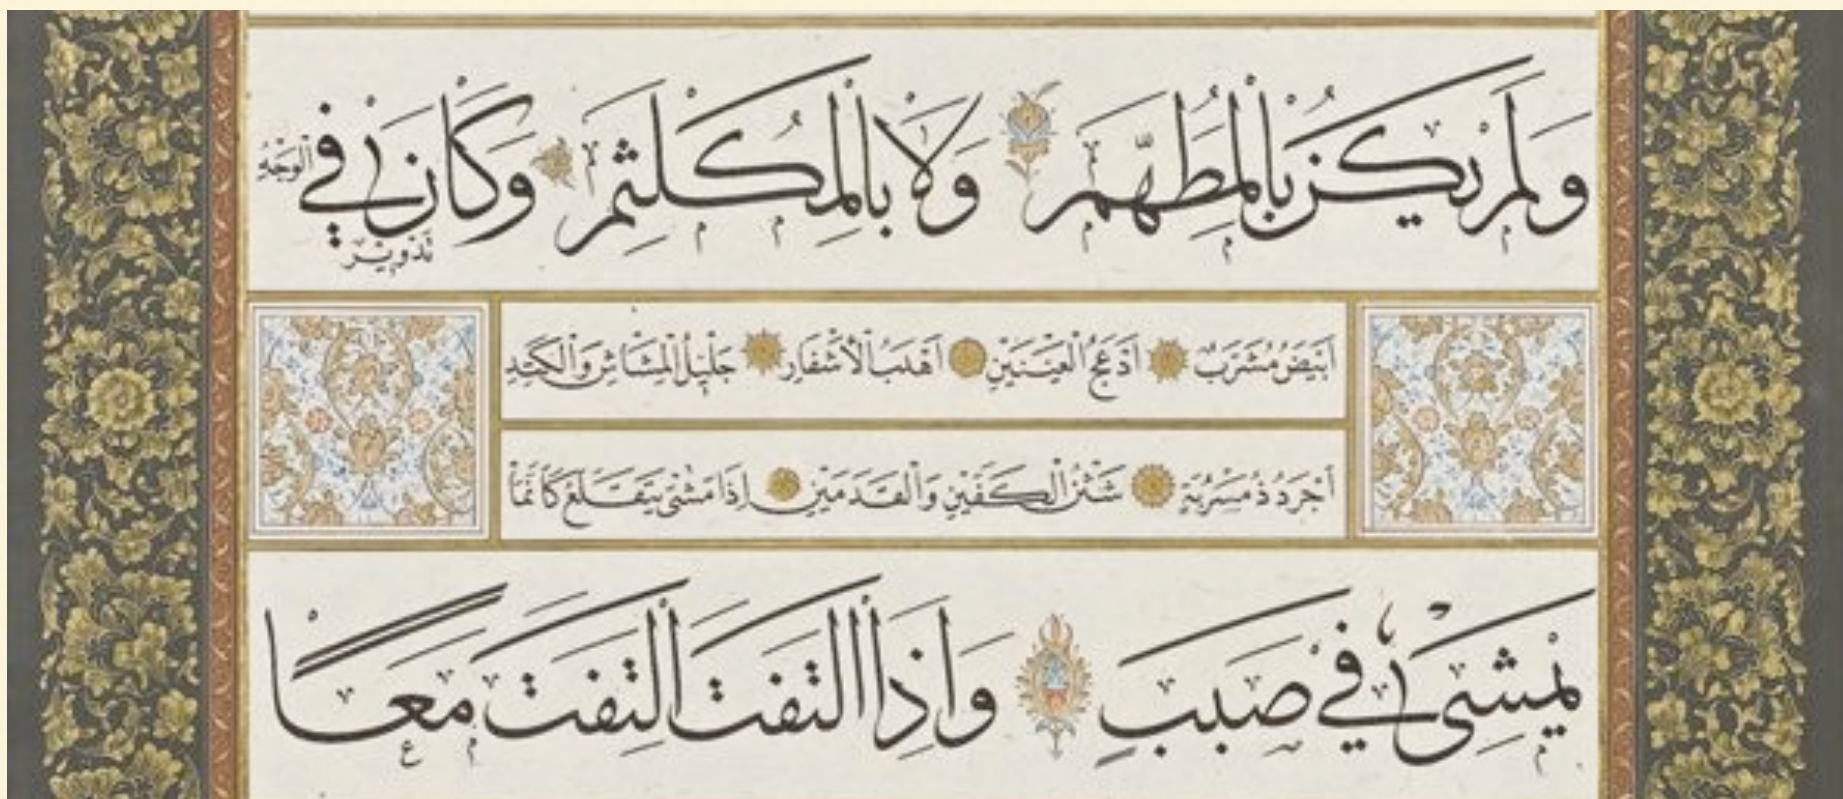 وَلَمْ يَكُنْ بِالْمُطَهَّمِ وَلَا بِالْمُكَلْثَمِ وَكَانَ فِي الْوَجْهِ تَدْوِيْرٌ
اَبْيَضُ مُشْرَبٌ اَدْعَجُ الْعَيْنَيْنِ اَهْدَبُ الْاَشْفَارِ جَلِيْلُ الْمُشَاشِ وَالْكَتَدِ
اَجْرَدُ ذُ مَسْرُبَةٍ شَثْنُ الْكَفَّيْنِ وَالْقَدَمَيْنِ اِذَا مَشٰى يَتَقَلَّعُ كَاَنَّمَا
يَمْشِىْ فِيْ صَبَبٍ وَاِذَا الْتَفَتَ الْتَفَتَ مَعًا